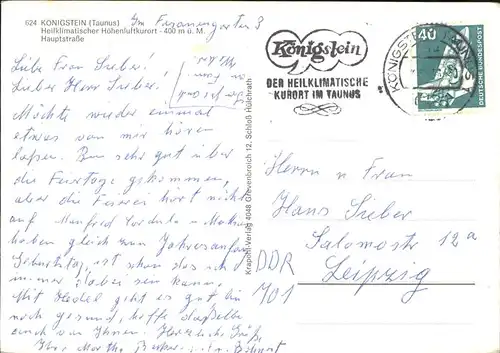 624 KÖNIGSTEIN (Taunus) Im Fasanengarten 3
Heilklimatischer Höhenluftkurort - 400 m ü. M.
Hauptstraße
Liebe Frau Sieber!
Lieber Herr Sieber!
Möchte wieder einmal
etwas von mir hören
lassen. Bin sehr gut über
die Feiertage gekommen,
aber die Feierei hört nicht
auf Manfred
haben gleich zum Jahresanfang
Geburtstag, ist schon das ich
immer dabei sein kann.
Mit geht es gut bin
noch gesund, hoffe dasselbe
auch von Ihnen. Herzliche Grüße
Ihre Martha
Krapohl-Verlag 4048 Grevenbroich 12, Schloß Hülchrath
Königstein
DER HEILKLIMATISCHE
KURORT IM TAUNUS
KÖNIGSTEIN
40
DEUTSCHE BUNDESPOST
Herrn u Frau
Hans Sieber
Salomostr 12a
DDR Leipzig
701